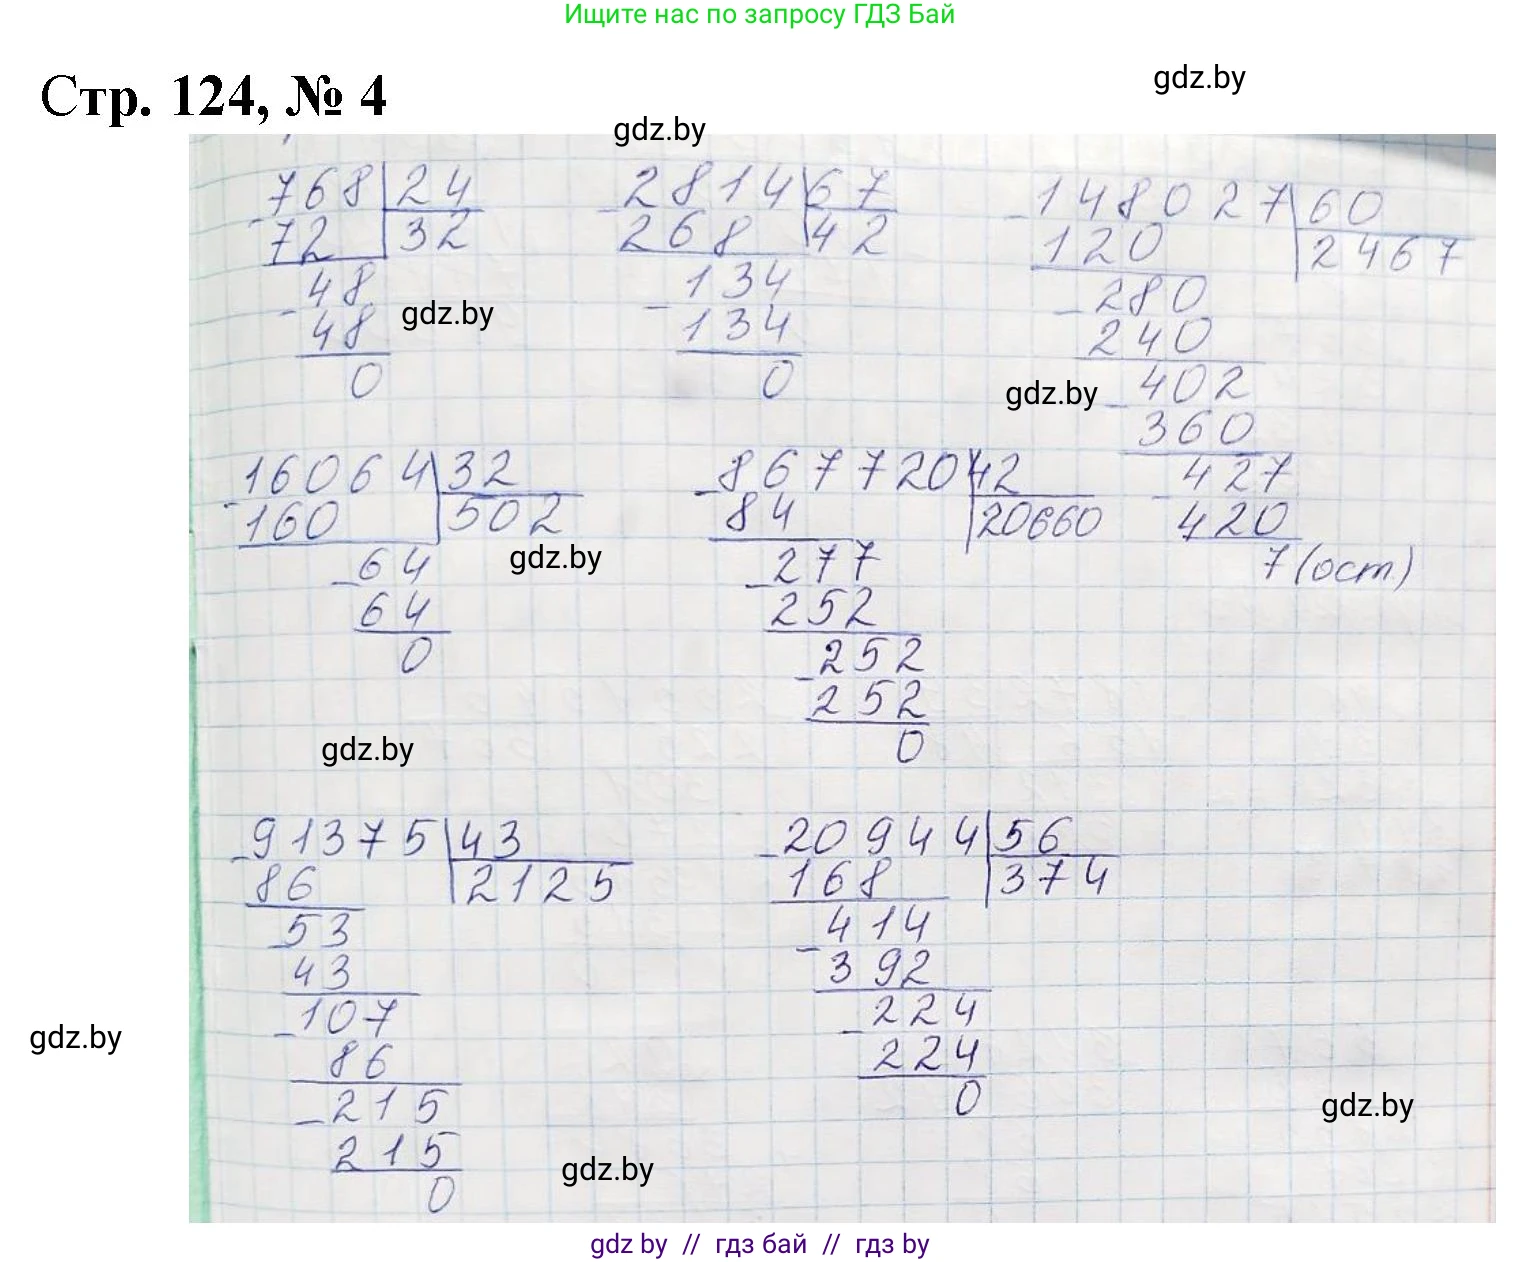 Ищите нас по запросу ГДЗ Бай
Стр. 124, № 4
gdz.by
gdz.by
768 24
72 32
48
48
0
gdz.by
2814 67
268 42
134
134
0
148027 60
120 2467
280
240
402
360
427
420
7 (ост)
gdz.by
16064 32
160 502
64
64
0
gdz.by
867720 42
84 20660
277
252
252
252
0
gdz.by
91375 43
86 2125
53
43
107
86
215
215
0
20944 56
168 374
414
392
224
224
0
gdz.by
gdz.by
gdz.by
gdz by // гдз бай // гдз by